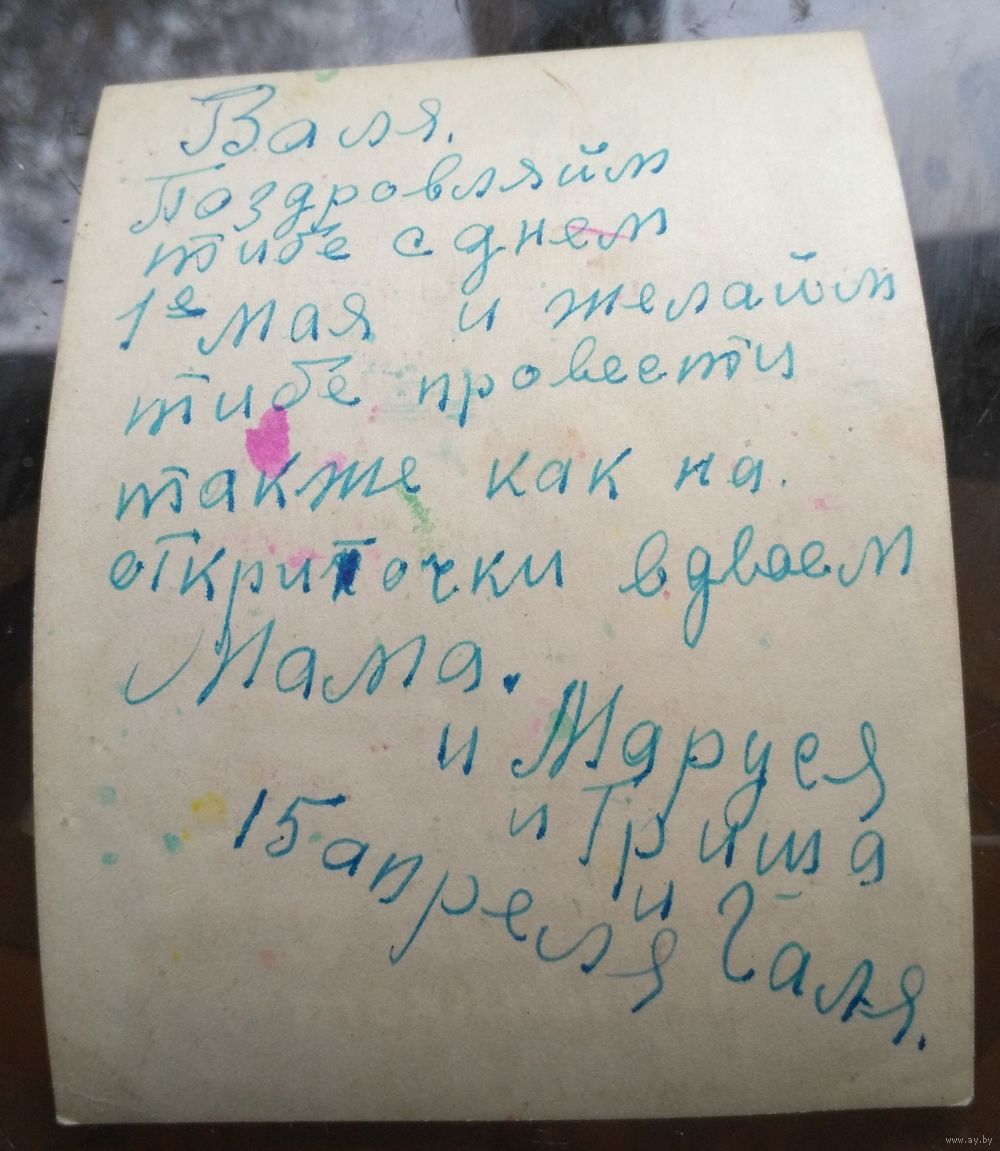 Валя.
Поздровляйм
тибе с днем
1е мая и желайм
тибе провести
также как на.
откриточки вдвоем
Мама.
и Маруся
и Гриша
и Галя.
15 апреля
www.ay.by